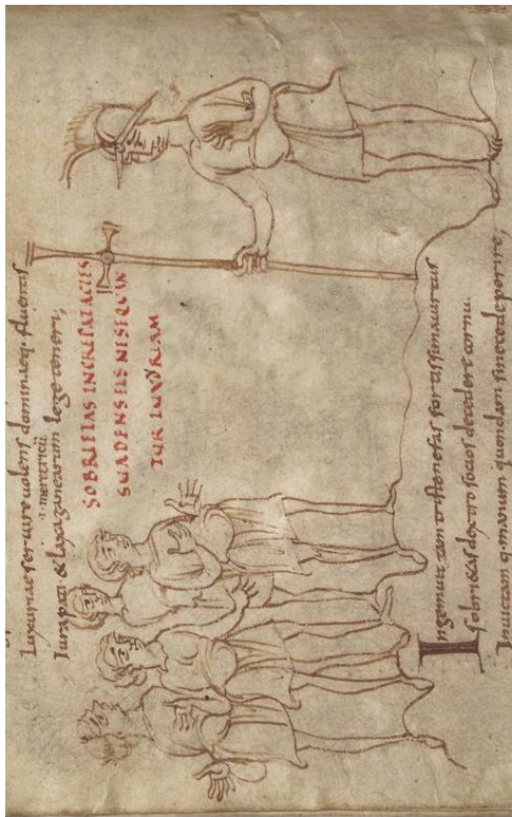 Luxuriae seruire uolens dominaeq. fluentis
.i. meretricii
Iura pati & laxa ganearum lege teneri;
SOBRIETAS INCREPAT ACIES
SUADENS EIS NE SEQUAN
TUR LUXURIAM
Ingemuit tam triste nefas fortissima uirtus
Sobri&as dextro socios decedere cornu.
Inuictam q. manum quondam sine cede perire;